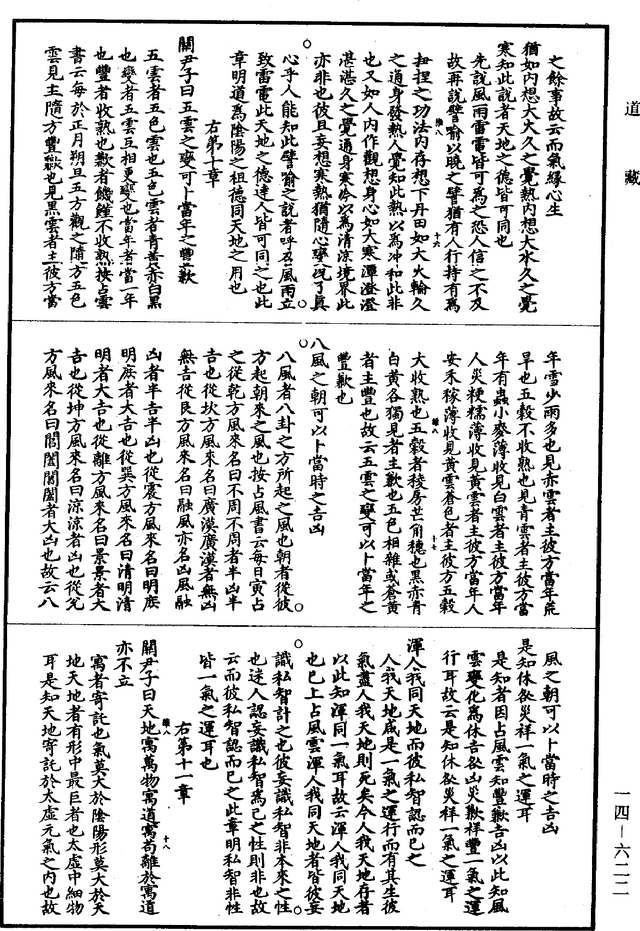 道藏
之餘事故云而氣緣心生
猶如内想大火久之覺熱内想大水久之覺
寒知此說者天地之德皆可同也
先說風雨雷電皆可爲之恐人信之不及
故再說譬喻以曉之譬猶有人行持有爲
緣八 十六
扭捏之功法内存想下丹田如大火輪久
之通身發熱人覺知此熱以爲冲和此非
也又如人内作觀想身心如大寒潭澄澄
湛湛久之覺通身寒冷以爲清涼境界此
亦非也彼且妄想寒熱猶隨心變況了真
心乎人能知此譬喻之說者呼召風雨立
致雷電此天地之德達人皆可同之也此
章明道爲陰陽之祖德同天地之用也
右第十章
關尹子曰五雲之變可卜當年之豐歉
五雲者五色雲也五色雲者青黄赤白黑
也變者五雲互相更變也當年者當一年
也豐者收熟也歉者饑饉不收熟按占雲
書云每於正月朔旦五方觀之隨方五色
雲見主隨方豐歉也見黑雲者主彼方當
年雪少雨多也見赤雲者主彼方當年荒
旱也五穀不收熟也見青雲者主彼方當
年有蟲小麥薄收見白雲者主彼方當年
人災粳糯薄收見黄雲者主彼方當年人
安禾稼薄收見黄雲蒼色者主彼方五穀
緣八 十七
大收熟也五穀者稜房芒角穗也黑赤青
白黄各獨見者主歉也五色相雜或蒼黄
者主豐也故云五雲之變可以卜當年之
豐歉也
八風之朝可以卜當時之吉凶
八風者八卦之方所起之風也朝者從彼
方起朝來之風也按占風書云每日寅占
之從乾方風來名曰不周不周者半凶半
吉也從坎方風來名曰廣漠廣漠者無凶
無吉從艮方風來名曰融風亦名凶風融
凶者半吉半凶也從震方風來名曰明庶
明庶者大吉也從巽方風來名曰清明清
明者大吉也從離方風來名曰景景者大
吉也從坤方風來名曰涼涼者凶也從兌
方風來名曰閶闔閶闔者大凶也故云八
風之朝可以卜當時之吉凶
是知休咎災祥一氣之運耳
是知者因占風雲知豐歉吉凶以此知風
雲變化爲休吉咎凶災歉祥豐一氣之運
行耳故云是知休咎災祥一氣之運耳
渾人我同天地而彼私智認而已之
人我天地咸是一氣之運行而有其生彼
氣盡人我天地則死矣今人我天地存者
以此知渾同一氣耳故云渾人我同天地
也已上占風雲渾人我同天地者皆彼妄
識私智計之也彼妄識私智非本來之性
也迷人認妄識私智爲己之性則非也故
云而彼私智認而已之此章明私智非性
皆一氣之運耳也
右第十一章
緣八 十八
關尹子曰天地寓萬物寓道寓苟離於寓道
亦不立
寓者寄託也氣莫大於陰陽形莫大於天
地天地者有形中最巨者也太虛中細物
耳是知天地寄託於太虛元氣之内也故
一四—六二二